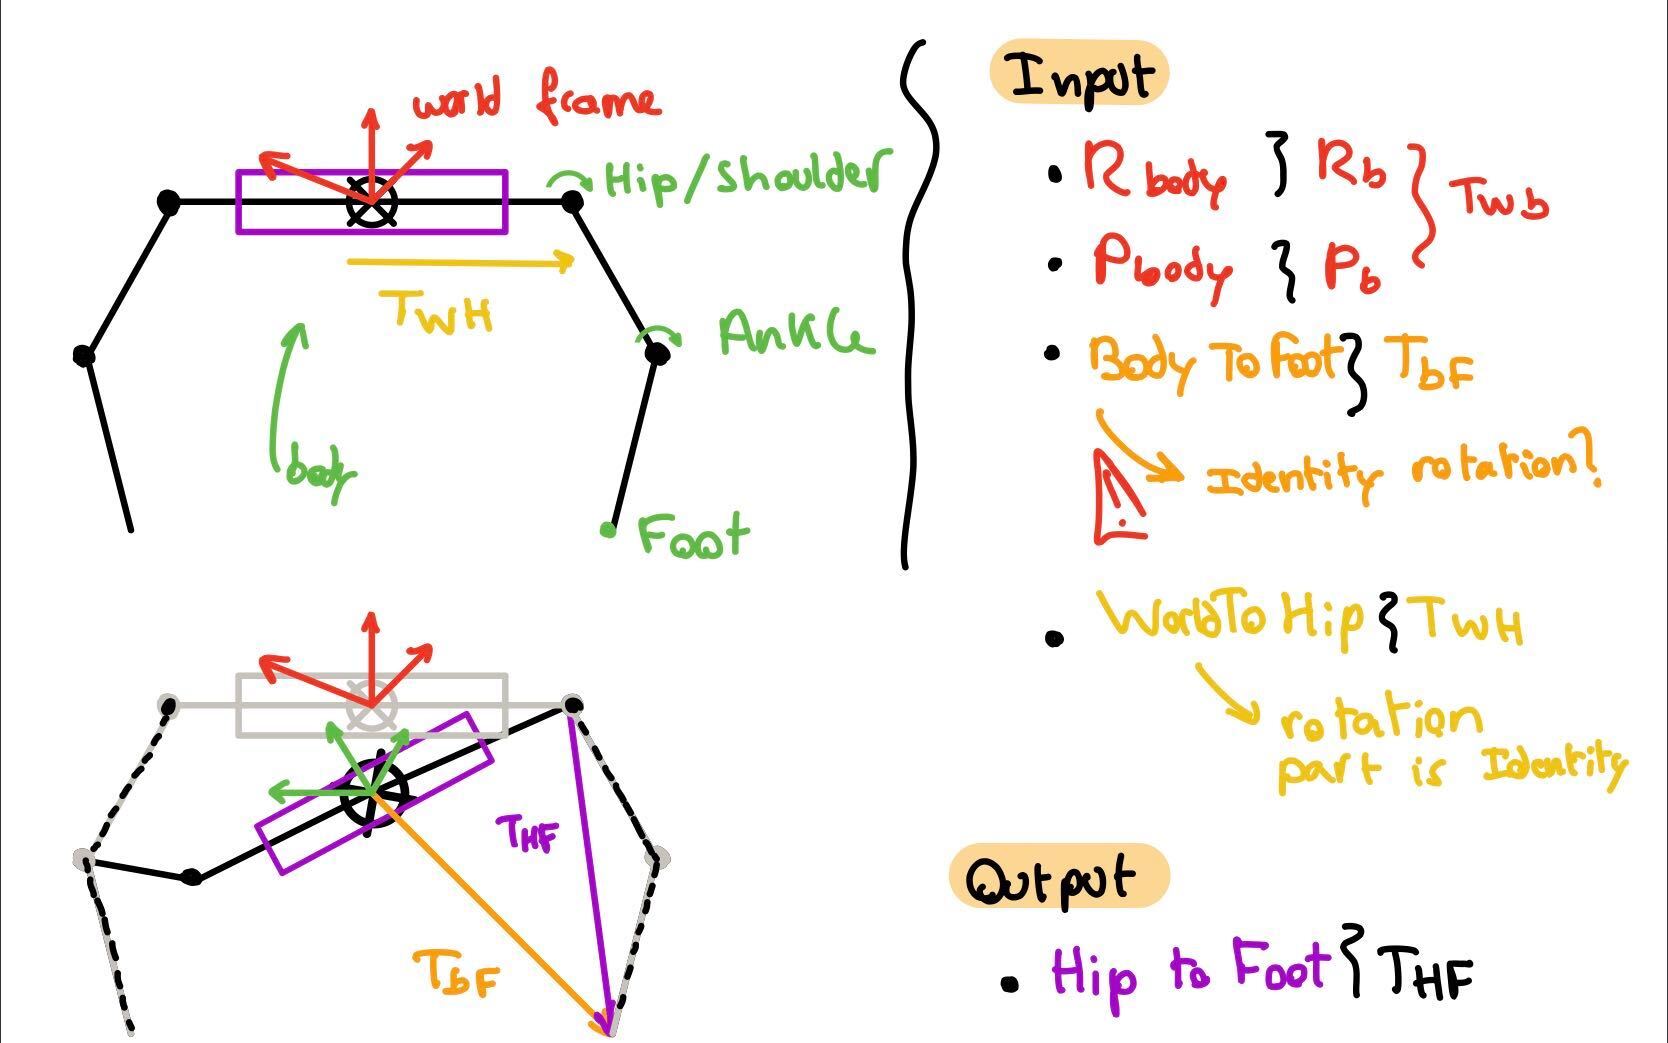 world frame
Hip/Shoulder
TWH
Ankle
body
Foot
THF
TbF
Input
• Rbody } Rb } Twb
• Pbody } Pb
• Body To Foot } TbF
Identity rotation?
!
• WorldTo Hip } TWH
rotation
part is Identity
Output
• Hip to Foot } THF